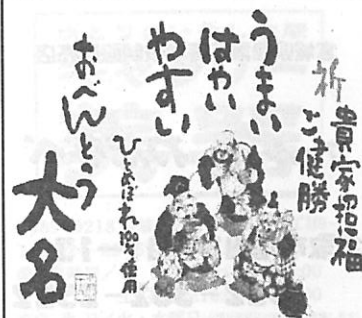 祈 貴家招福
ご健勝
うまい
はやい
やすい
ひとめぼれ100%使用
おべんとう
大名